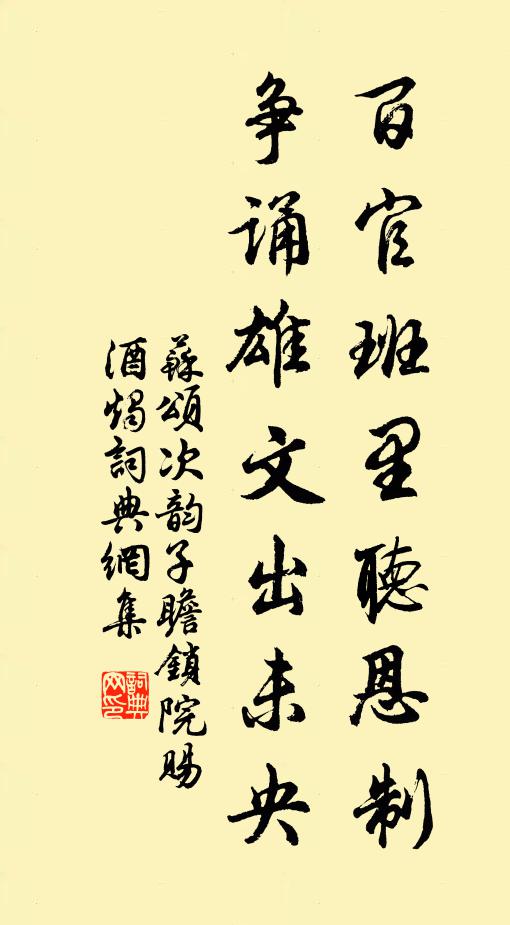 百官班里聽恩制
争诵雄文出未央
蘇頌次韵子瞻鎖院賜
酒燭詞典網集
詞典网印